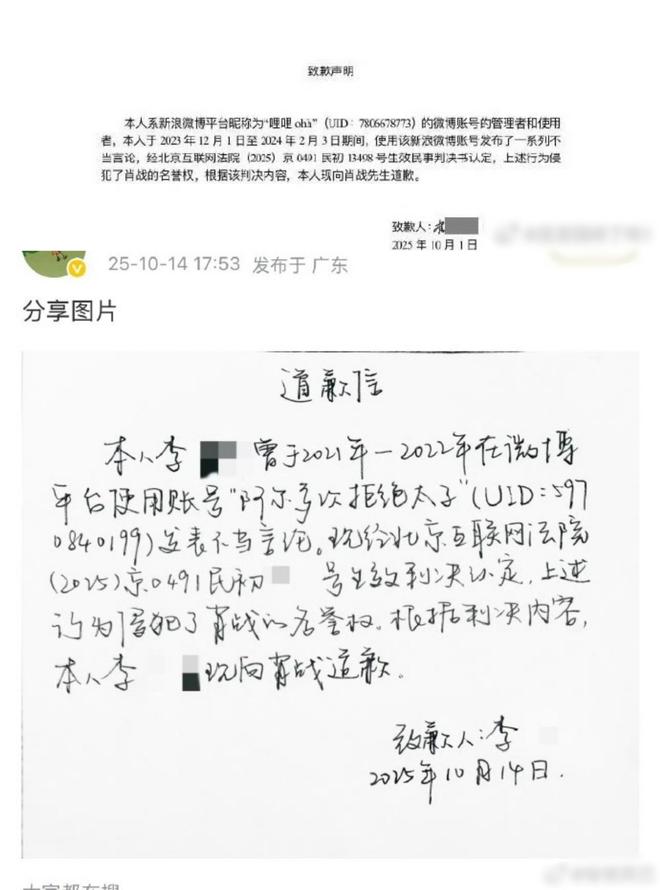 致歉声明
本人系新浪微博平台昵称为“哩哩 oha”(UID:7806678773)的微博账号的管理者和使用
者,本人于 2023 年 12 月 1 日至 2024 年 2 月 3 日期间,使用该新浪微博账号发布了一系列不
当言论,经北京互联网法院(2025)京 0491 民初 13498 号生效民事判决书认定,上述行为侵
犯了肖战的名誉权,根据该判决内容,本人现向肖战先生道歉。
致歉人:
2025 年 10 月 1 日
25-10-14 17:53 发布于 广东
分享图片
道歉信
本人李 曾于2021年—2022年在微博
平台使用账号“阿尔多次拒绝太子”(UID:597
0840199)发表不当言论。现经北京互联网法院
(2025)京0491民初 号生效判决认定,上述
行为侵犯了肖战的名誉权。根据判决内容,
本人李 现向肖战道歉。
致歉人:李
2025年10月14日.
大家都在搜